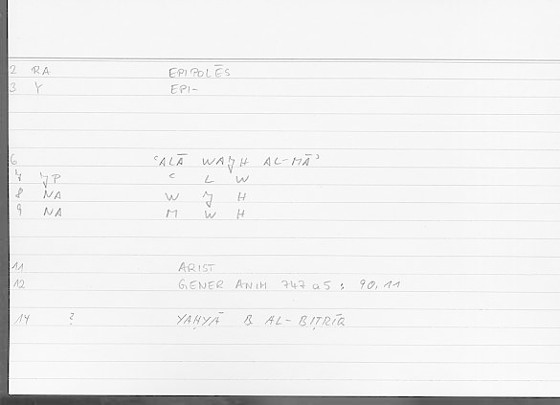 2 RA EPIPOLĒS
3 Y EPI-
6 ʿALĀ WAJH AL-MĀʾ
7 JP ʿ L W
8 NA W J H
9 NA M W H
11 ARIST
12 GENER ANIM 747 a5 : 90.11
14 ? YAḤYĀ B AL-BIṬRĪQ